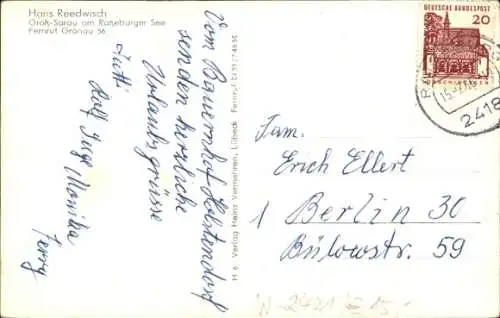 Hans Reedwisch
Groß-Sarau am Ratzeburger See
Fernruf Grönau 36
Vom Bauernhof Holstendorf
senden herzliche
Urlaubsgrüsse
Jutti
Rolf Inge Monika
Ferry
H 6 Verlag Heinz Vermehren, Lübeck Fernruf
DEUTSCHE BUNDESPOST
20
2418
Fam.
Erich Ellert
1 Berlin 30
Bülowstr. 59